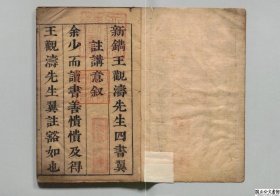 新鐫王觀濤先生四書翼
註講意叙
余少而讀書善憒憒及得
王觀濤先生翼註豁如也